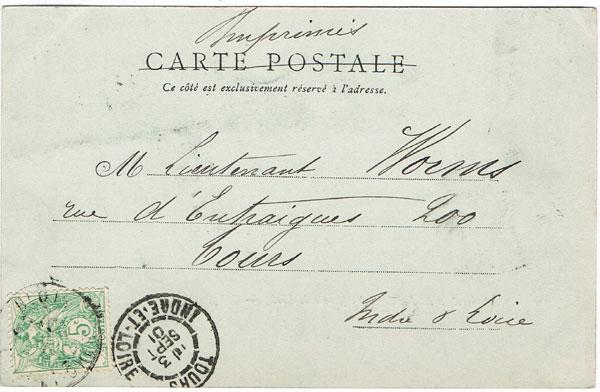 Imprimés
CARTE POSTALE
Ce côté est exclusivement réservé à l'adresse.
M Lieutenant Worms
rue d'Entraigues 200
Tours
Indre & Loire
5
TOURS
INDRE-ET-LOIRE